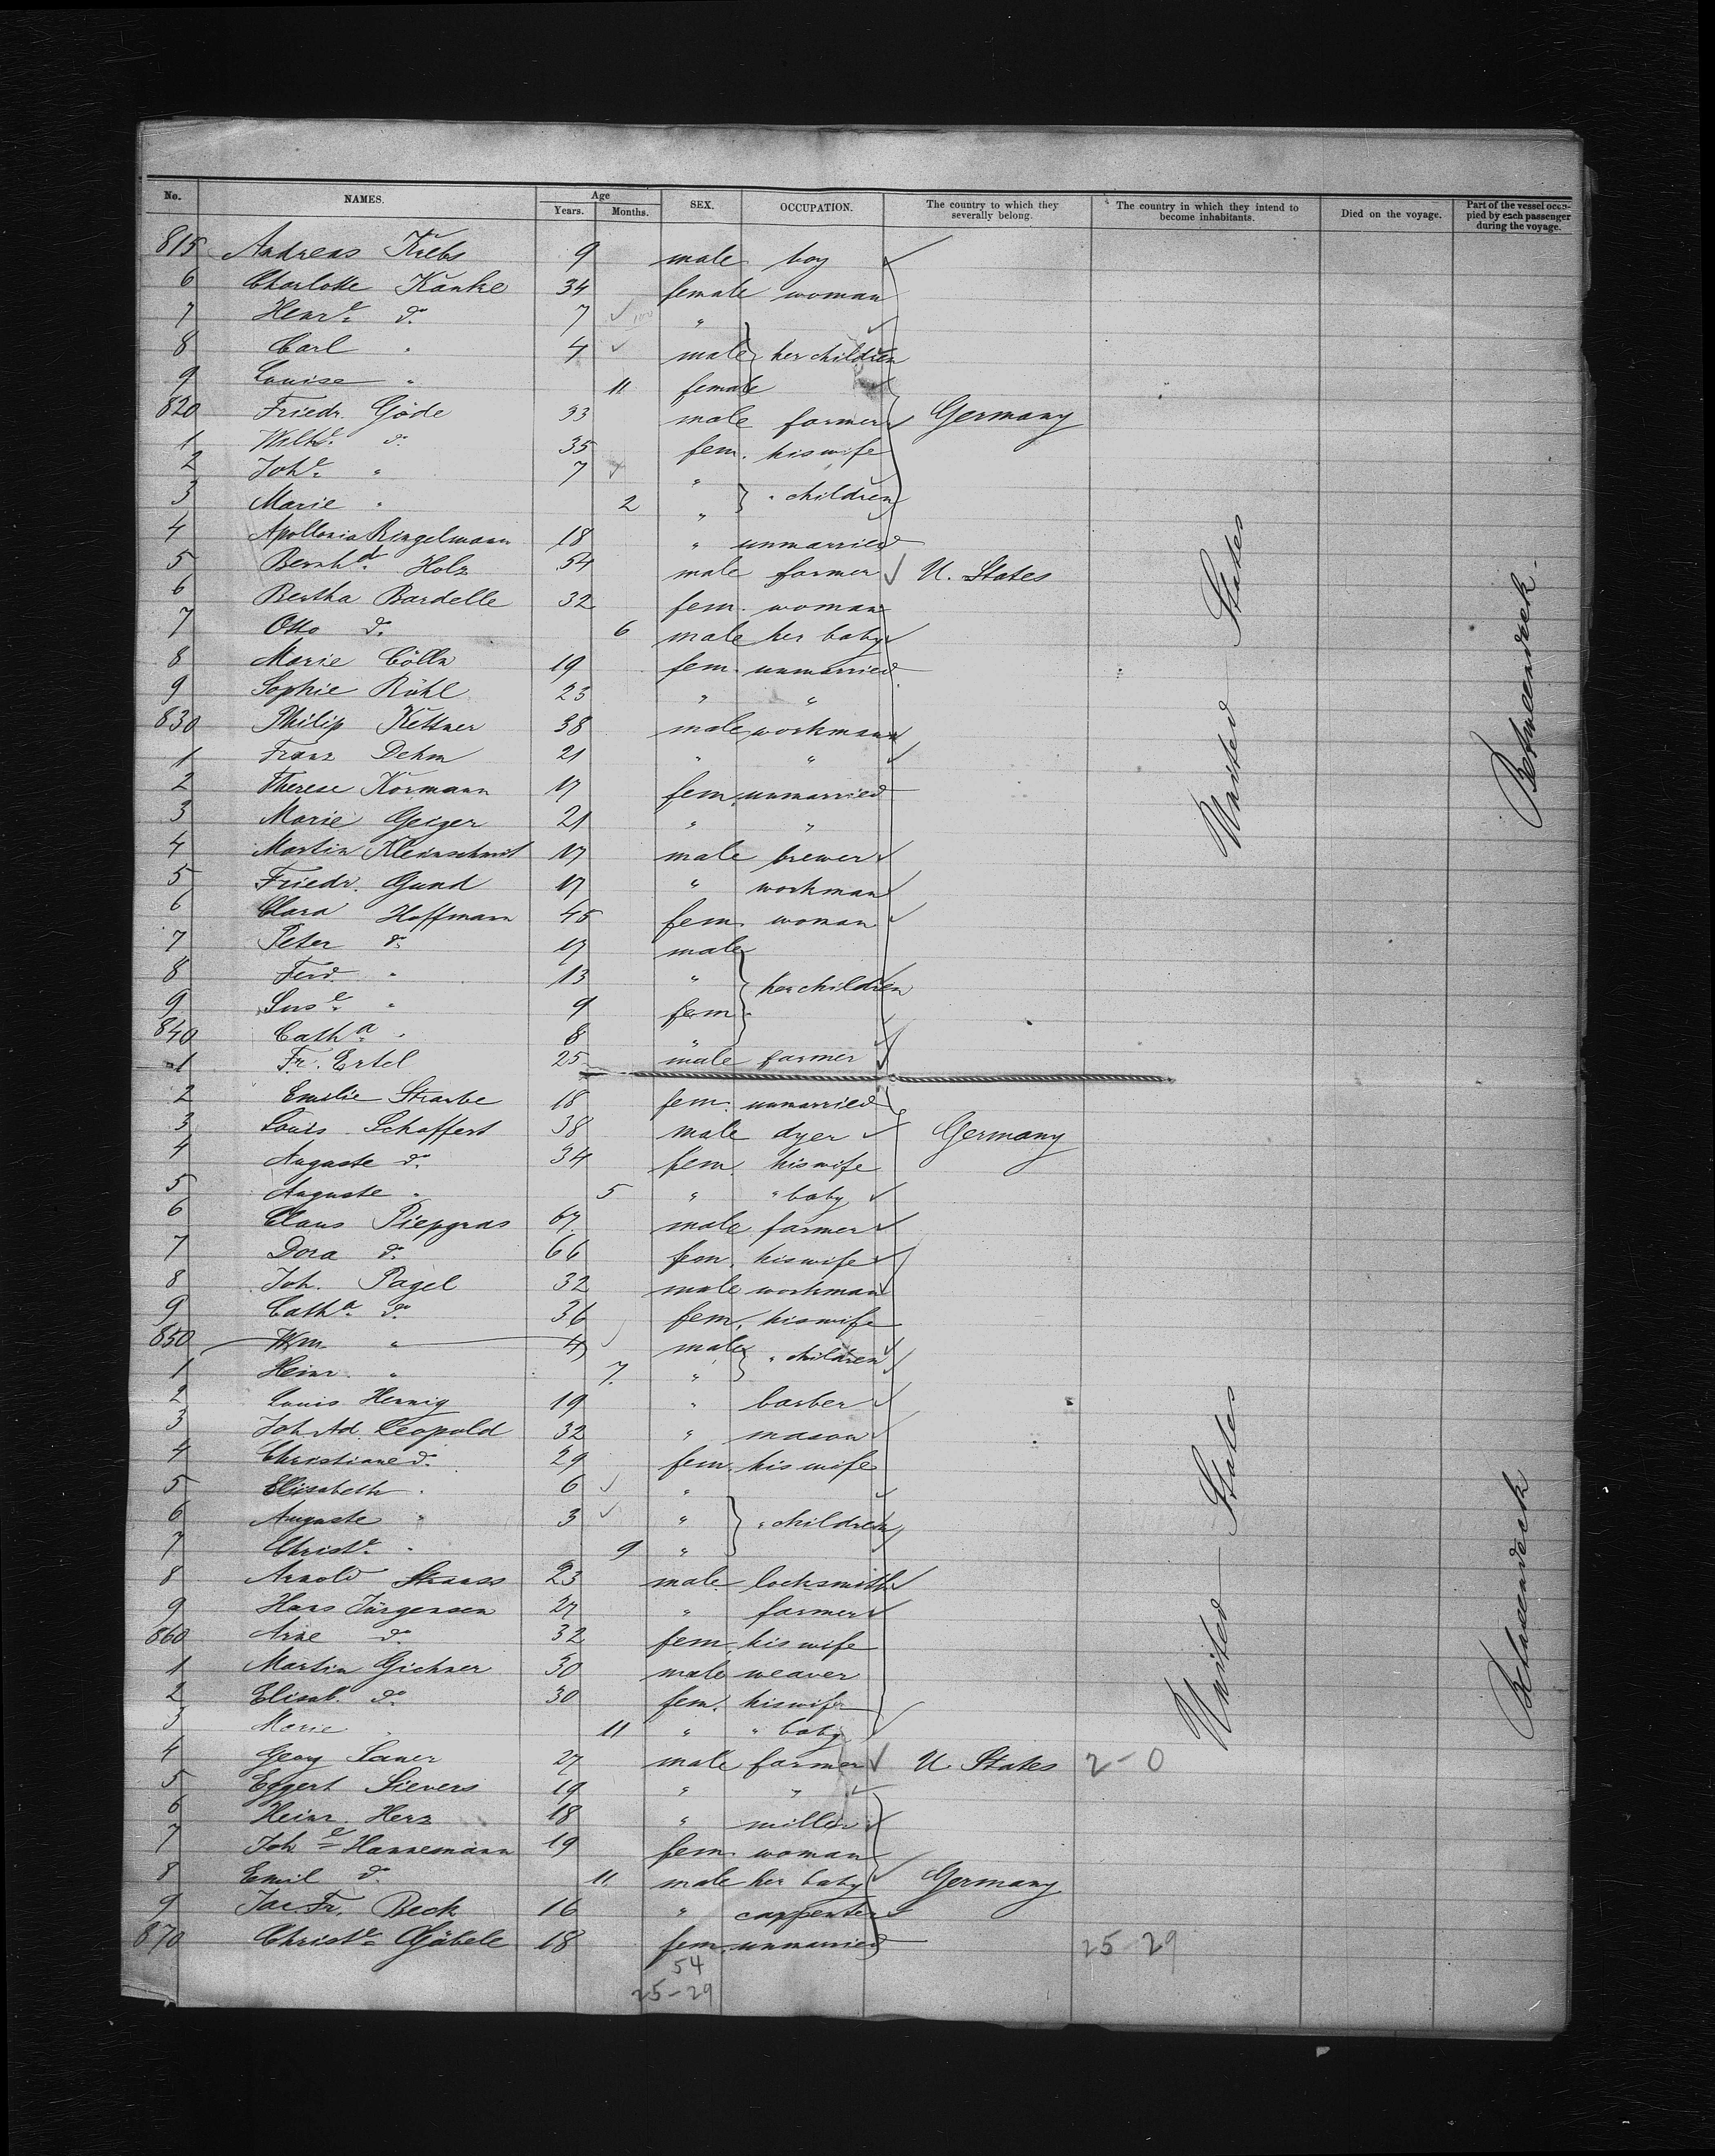 No. NAMES. Age Years. Months. SEX. OCCUPATION. The country to which they severally belong. The country in which they intend to become inhabitants. Died on the voyage. Part of the vessel occupied by each passenger during the voyage.
815 Andreas Krebs 9 male boy
6 Charlotte Kanke 34 female woman
7 Henr.e do. 7 "
8 Carl " 4 male her children
9 Louise " 11 female
820 Friedr. Göde 33 male farmer Germany
1 Wilh.e do. 35 fem. his wife
2 Joh.e " 7 "
3 Marie " 2 " " children
4 Apollonia Ringelmann 18 " unmarried
5 Bernh.d Holz 54 male farmer U. States
6 Bertha Bardelle 32 fem. woman
7 Otto do. 6 male her baby
8 Marie Cölln 19 fem. unmarried
9 Sophie Rühl 23 " "
830 Philip Kettner 38 male workman
1 Franz Dehm 21 " "
2 Therese Kormann 17 fem. unmarried
3 Marie Geiger 21 " "
4 Martin Kleinschmit 17 male brewer
5 Friedr. Gund 17 " workman
6 Clara Hoffmann 45 fem. woman
7 Peter do. 17 male
8 Ferd. " 13 " her children
9 Sus.e " 9 fem.
840 Cath.a " 8 "
1 Fr. Ertel 25 male farmer
2 Emilie Straube 18 fem. unmarried
3 Louis Schaffert 38 male dyer Germany
4 Auguste do. 34 fem. his wife
5 Auguste " 5 " " baby
6 Claus Piepgras 67 male farmer
7 Dora do. 66 fem. his wife
8 Joh. Pagel 32 male workman
9 Cath.a do. 36 fem. his wife
850 Wm. " 4 male " children
1 Heinr. " 7 "
2 Louis Hennig 19 " barber
3 Joh. Ad. Leopold 32 " mason
4 Christiane do. 29 fem. his wife
5 Elisabeth " 6 "
6 Auguste " 3 " " children
7 Christ.e " 9 "
8 Arnold Strauss 23 male locksmith
9 Hans Jürgensen 27 " farmer
860 Ane do. 32 fem. his wife
1 Martin Gichner 30 male weaver
2 Elisab. do. 30 fem. his wife
3 Marie " 11 " " baby
4 Georg Laner 27 male farmer U. States 2-0
5 Eggert Sievers 19 " "
6 Heinr. Herz 18 " miller
7 Joh.e Hannemann 19 fem. woman
8 Emil do. 11 male her baby Germany
9 Jac. Fr. Beck 16 " carpenter
870 Christ.e Göbele 18 fem. unmarried 25-29
54
25-29
United States
Betweendeck.
United States
Betweendeck